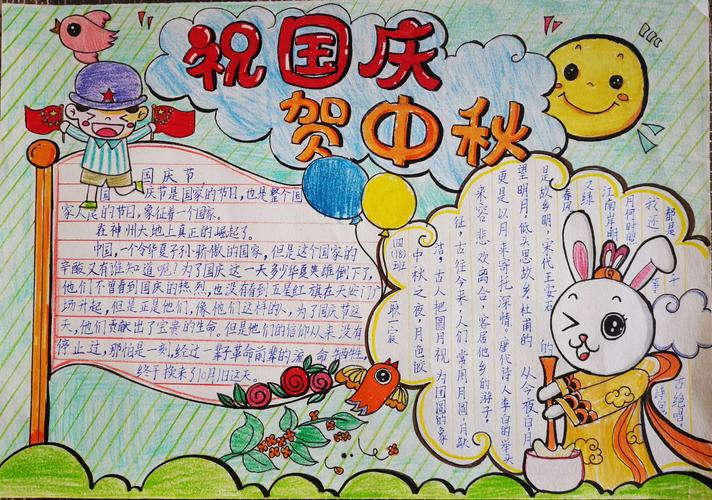 祝国庆
贺中秋
国庆节,
家人民的节日,象征着一个国家。
在神州大地上真正的崛起了。
中国,一个令华夏子孙骄傲的国家,但是这个国家的
辛酸又有谁知道呢?为了国庆这一天多少华夏英雄倒下了,
他们不曾看到国庆的热烈,也没有看到五星红旗在天安门广
场升起,但是正是他们,像他们这样的人,为了国庆节这
天,他们贡献出了宝贵的生命,但是他们的信仰从来没有
停止过,那怕是一刻,经过一辈革命前辈的流 牺牲,
终于换来了10月1日这天。
四(18)班
耿一宸
中秋之夜,月色皎
洁,古人把圆月视为团圆的象
征,古往今来,人们常用月圆,月缺
来容悲欢离合,客居他乡的游子,
更是以月来寄托深情。唐代诗人李白的举头
望明月,低头思故乡,杜甫的 从今夜白,月
是故乡明,宋代王安石 的
春风
又绿
江南岸,明
月何时照
我还
都是千
绝唱
诗句